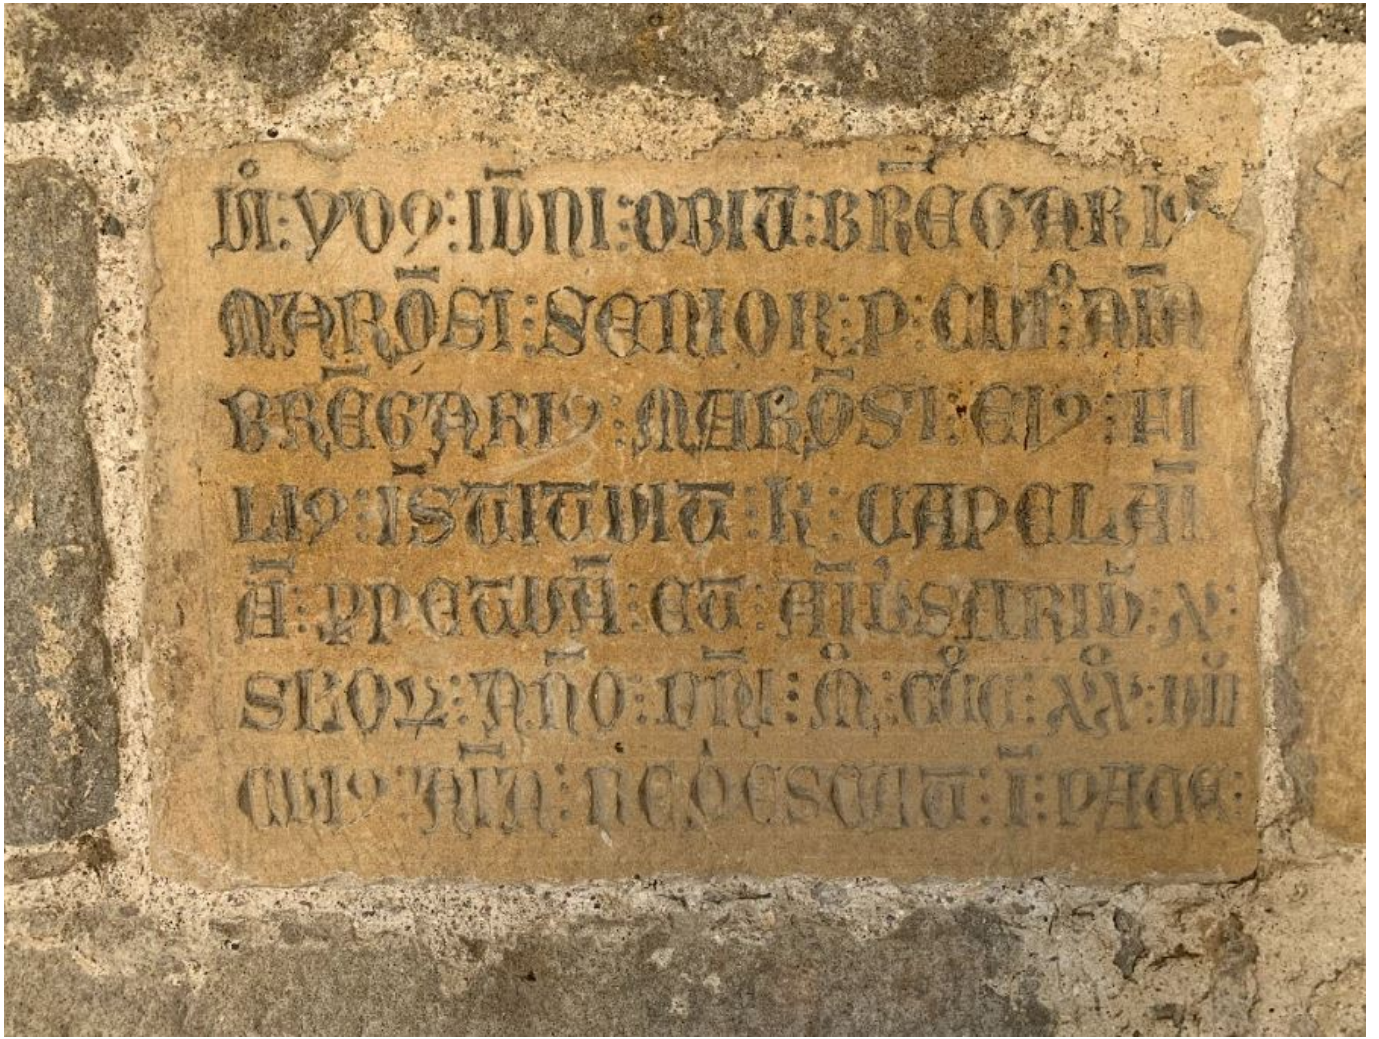 IIII : YD9 : IVNI : OBIT : BR̄EGARI9
MARŌSI : SENIOR : P : CUI9 : AĪA
BRĒGARI9 : MARŌSI : EI9 : FI
LI9 : ĪSTITVIT : K : CAPELAĪ
Ā : PPETVĀ : ET : AĪVSARIV̄ : X :
SŁOꝝ : AN̄O : DN̄I : M̊ : CCC̊ : XX̊ : VIII
CVI9 : AĪA : REQESCAT : Ī : PACE :